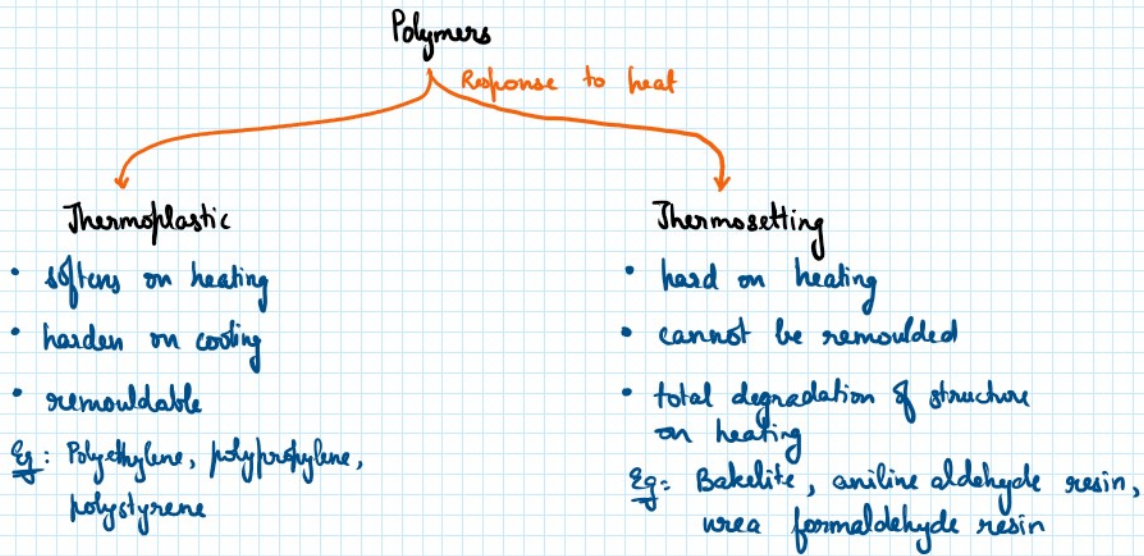 Polymers
Response to heat
Thermoplastic
• softens on heating
• harden on cooling
• remouldable
Eg: Polyethylene, polypropylene,
polystyrene
Thermosetting
• hard on heating
• cannot be remoulded
• total degradation of structure
on heating
Eg: Bakelite, aniline aldehyde resin,
urea formaldehyde resin